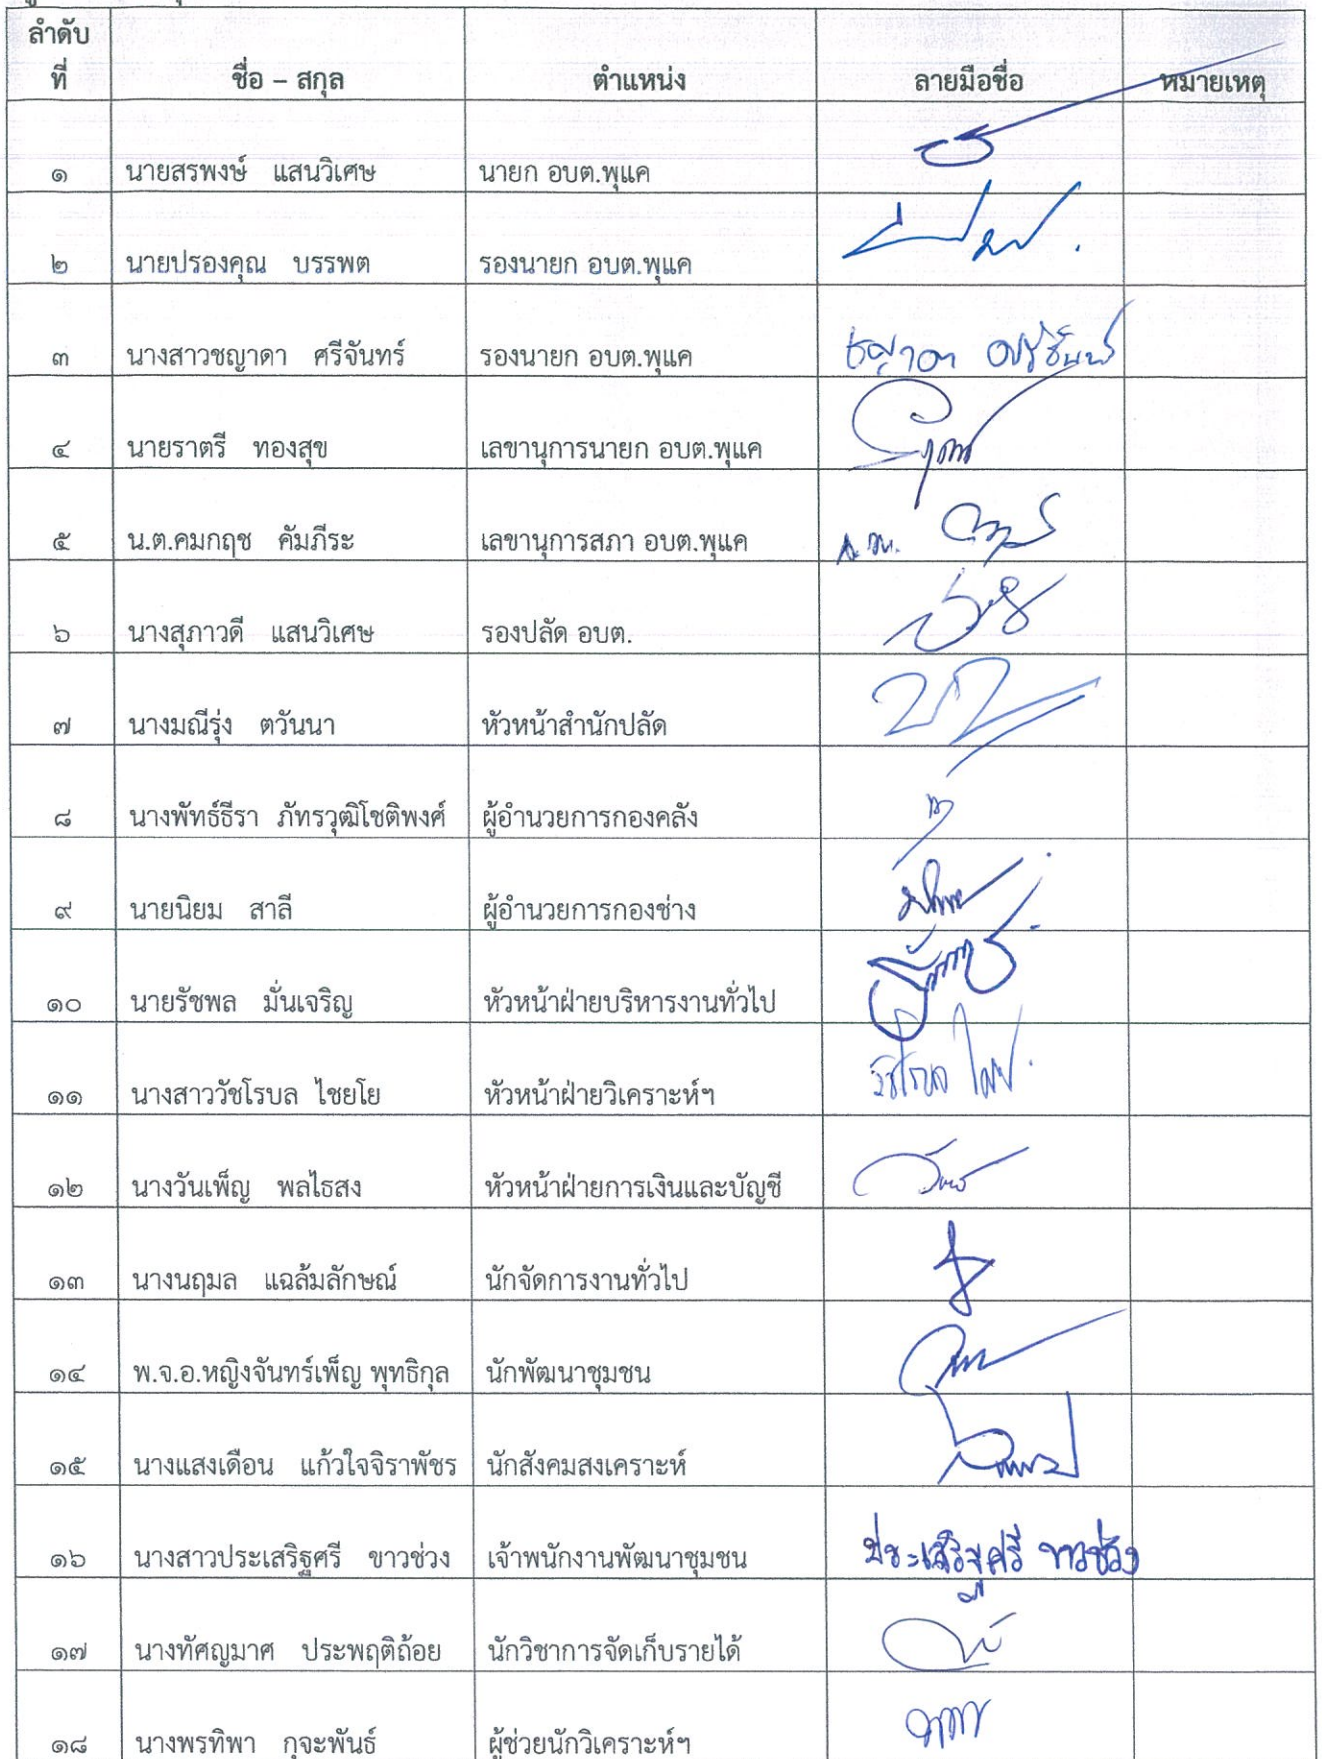 ลำดับ
ที่ ชื่อ – สกุล ตำแหน่ง ลายมือชื่อ หมายเหตุ
๑ นายสรพงษ์ แสนวิเศษ นายก อบต.พุแค
๒ นายปรองคุณ บรรพต รองนายก อบต.พุแค
๓ นางสาวชญาดา ศรีจันทร์ รองนายก อบต.พุแค ชญาดา ศรีจันทร์
๔ นายราตรี ทองสุข เลขานุการนายก อบต.พุแค
๕ น.ต.คมกฤช คัมภีระ เลขานุการสภา อบต.พุแค
๖ นางสุภาวดี แสนวิเศษ รองปลัด อบต.
๗ นางมณีรุ่ง ตวันนา หัวหน้าสำนักปลัด
๘ นางพัทธ์ธีรา ภัทรวุฒิโชติพงศ์ ผู้อำนวยการกองคลัง
๙ นายนิยม สาลี ผู้อำนวยการกองช่าง
๑๐ นายรัชพล มั่นเจริญ หัวหน้าฝ่ายบริหารงานทั่วไป
๑๑ นางสาววัชโรบล ไชยโย หัวหน้าฝ่ายวิเคราะห์ฯ วัชโรบล
๑๒ นางวันเพ็ญ พลไธสง หัวหน้าฝ่ายการเงินและบัญชี
๑๓ นางนฤมล แฉล้มลักษณ์ นักจัดการงานทั่วไป
๑๔ พ.จ.อ.หญิงจันทร์เพ็ญ พุทธิกุล นักพัฒนาชุมชน
๑๕ นางแสงเดือน แก้วใจจิราพัชร นักสังคมสงเคราะห์
๑๖ นางสาวประเสริฐศรี ขาวช่วง เจ้าพนักงานพัฒนาชุมชน ประเสริฐศรี ขาวช่วง
๑๗ นางทัศญมาศ ประพฤติถ้อย นักวิชาการจัดเก็บรายได้
๑๘ นางพรทิพา กุจะพันธ์ ผู้ช่วยนักวิเคราะห์ฯ